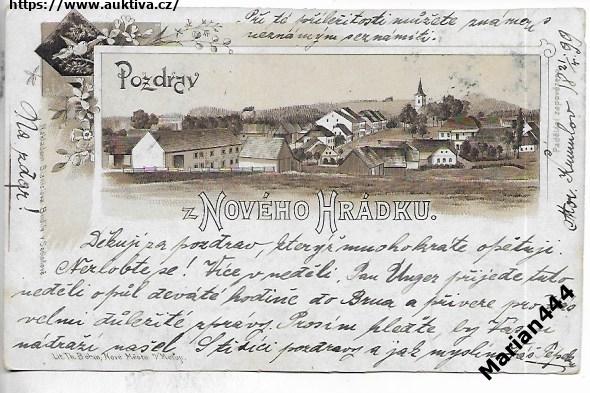 https://www.auktiva.cz/
Při té příležitosti můžete známou s
neznámým seznámiti.
Pozdrav
Na zdar!
Mor. Krumlov 18 12/4 99
Z NOVÉHO HRÁDKU.
Děkuji za pozdrav, kterýž mnohokráte opětuji.
Nezlobte se! Více v neděli. Pan Unger přijede tuto
neděli o půl deváté hodině do Brna a přiveze pro Vás
velmi důležité zprávy. Prosím hleďte, by Vás na
nádraží našel. Stížící pozdravy a jak myslím
Lit. Th. Böhm, Nové Město n/Metují.
Marian444